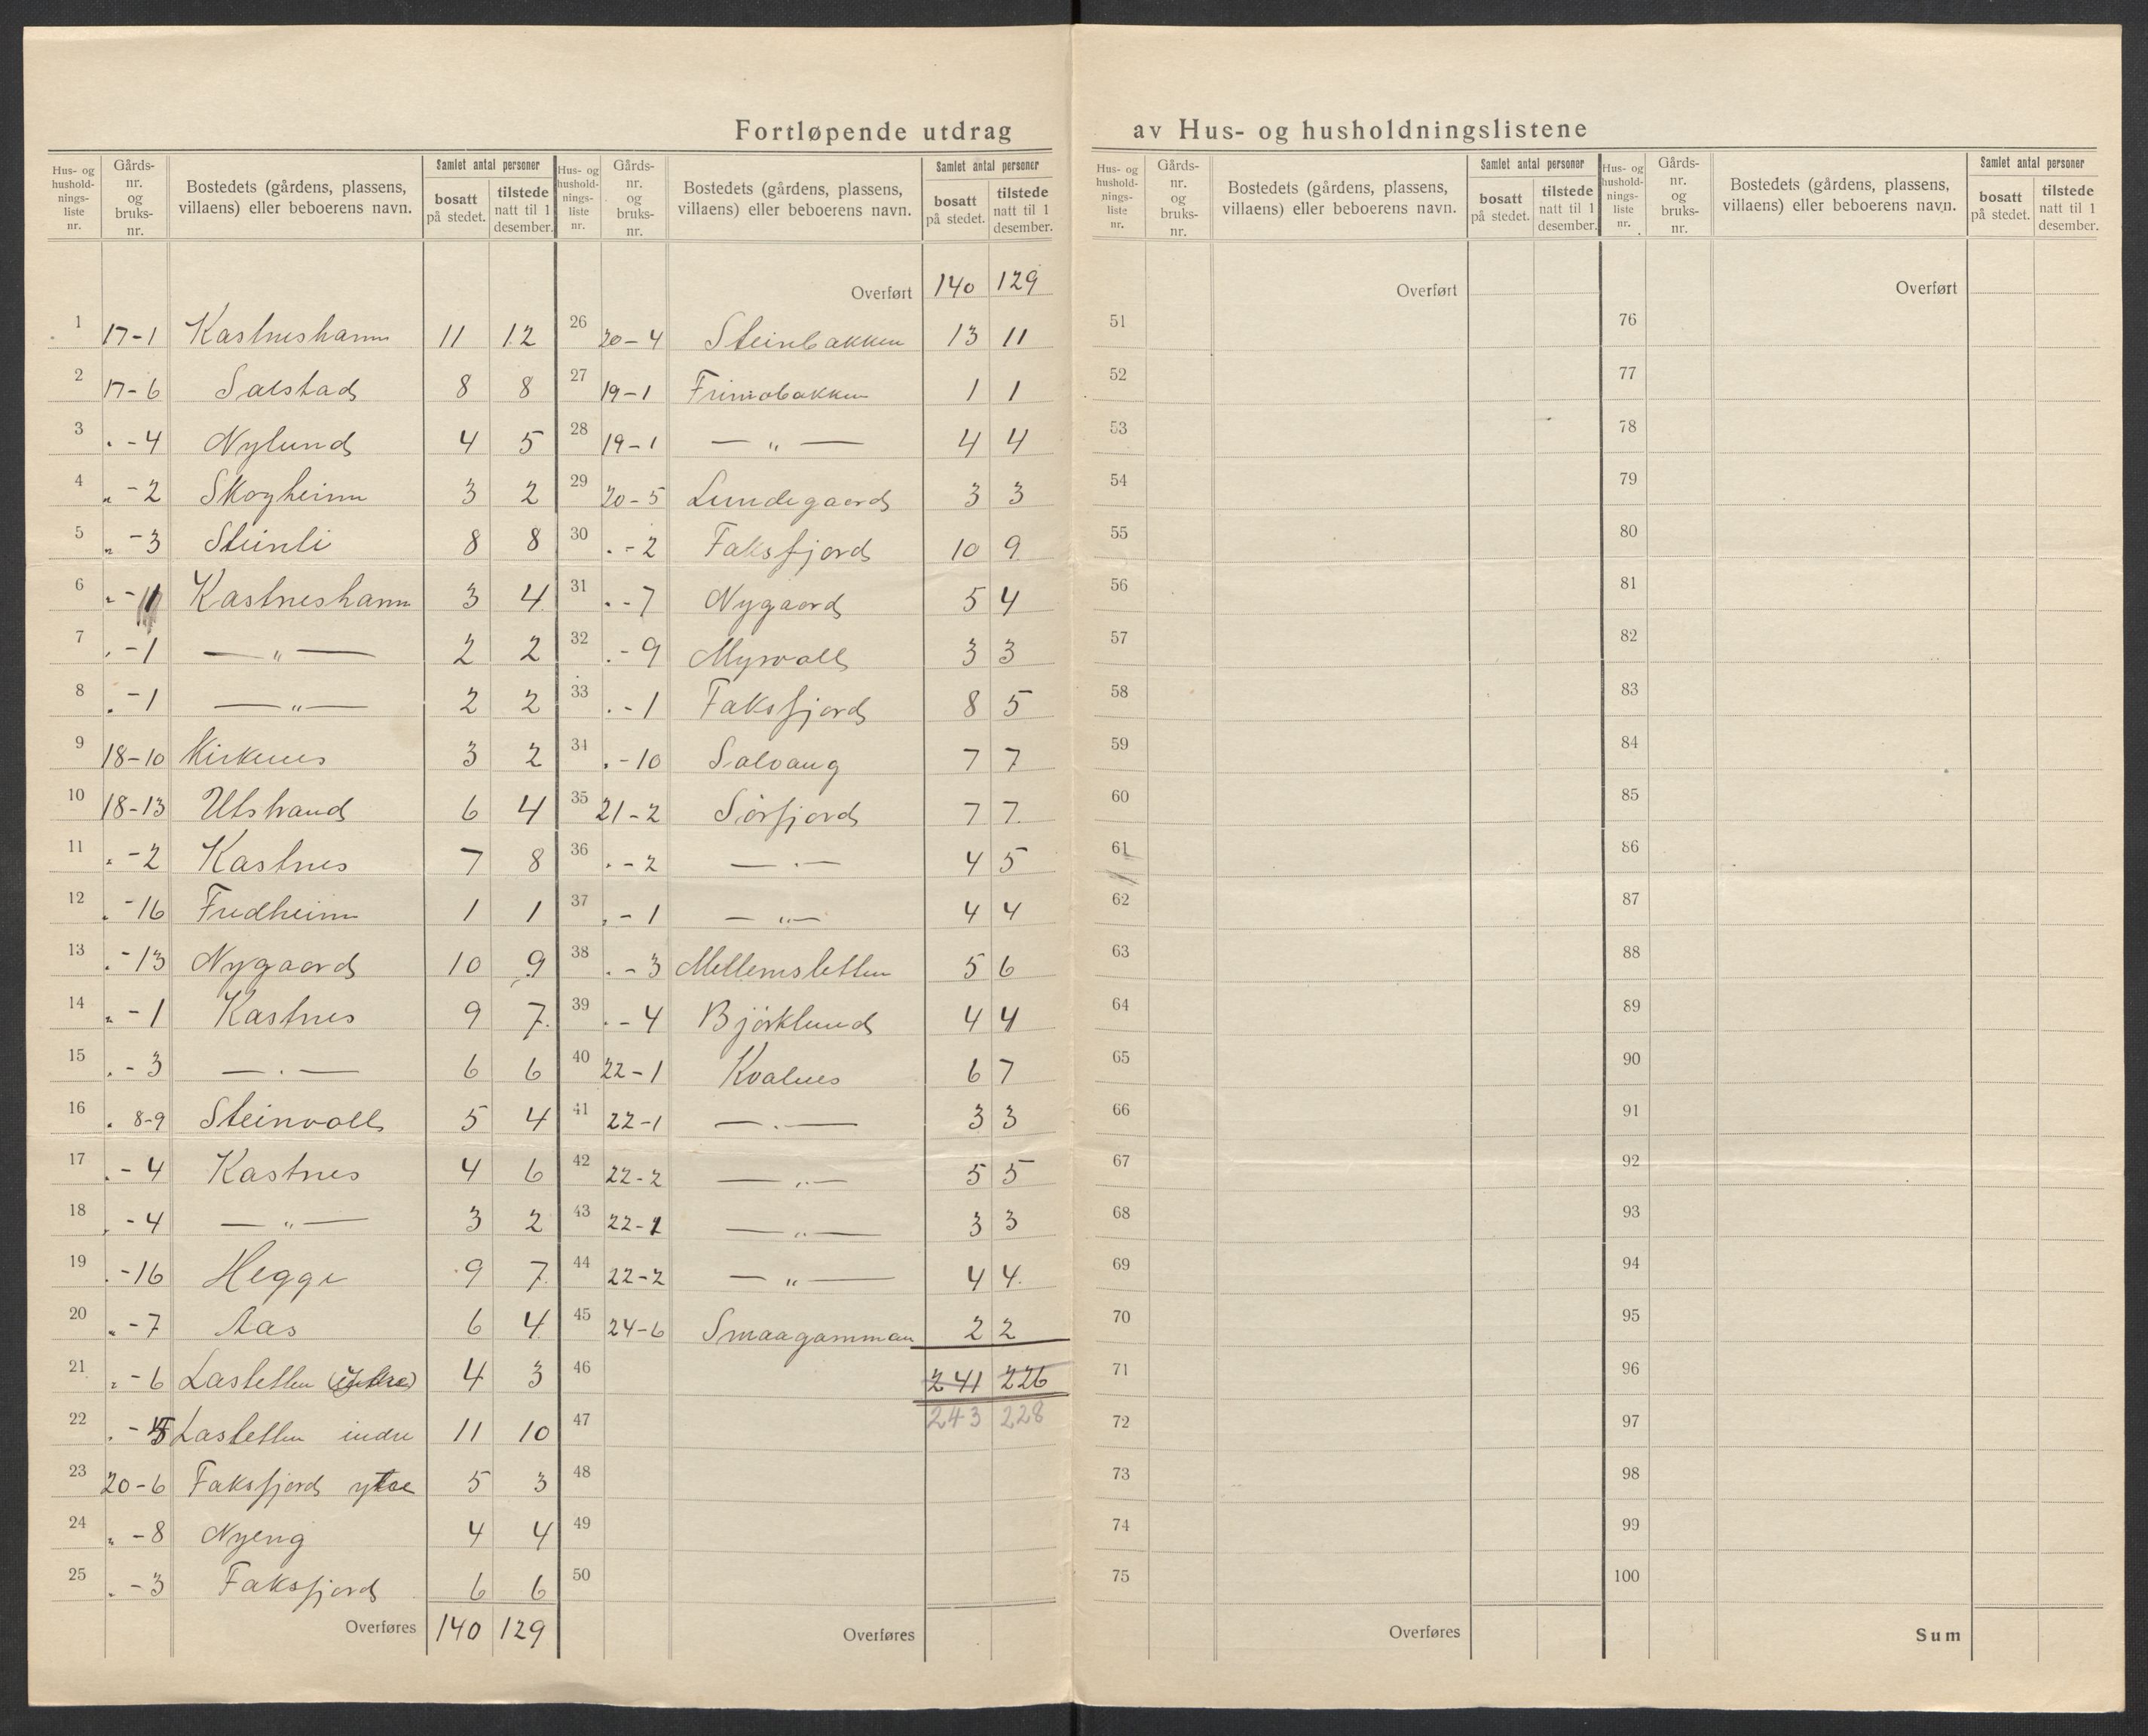 Fortløpende utdrag av Hus- og husholdningslistene
Hus- og hushold- nings- liste nr. Gårds- nr. og bruks- nr. Bostedets (gårdens, plassens, villaens) eller beboerens navn. Samlet antal personer bosatt på stedet. tilstede natt til 1 desember.
1 17-1 Kastneshamn 11 12
2 17-6 Salstad 8 8
3 . -4 Nylund 4 5
4 „ -2 Skogheim 3 2
5 „ -3 Steinli 8 8
6 „ - Kastneshamn 3 4
7 . -1 — „ — 2 2
8 . -1 — „ — 2 2
9 18-10 Kirkenes 3 2
10 18-13 Utstrand 6 4
11 „ -2 Kastnes 7 8
12 . -16 Fredheim 1 1
13 . -13 Nygaard 10 9
14 „ -1 Kastnes 9 7
15 . -3 — . — 6 6
16 . 8-9 Steinvoll 5 4
17 . -4 Kastnes 4 6
18 . -4 — „ — 3 2
19 . -16 Hegge 9 7
20 „ -7 Aas 6 4
21 „ -6 Lasletten 4 3
22 . - Lasletten indre 11 10
23 20-6 Faksfjord ytre 5 3
24 „ -8 Nyeng 4 4
25 . -3 Faksfjord 6 6
Overføres 140 129
Hus- og hushold- nings- liste nr. Gårds- nr. og bruks- nr. Bostedets (gårdens, plassens, villaens) eller beboerens navn. Samlet antal personer bosatt på stedet. tilstede natt til 1 desember.
Overført 140 129
26 20-4 Steinbakken 13 11
27 19-1 1 1
28 19-1 — „ — 4 4
29 20-5 Lundegaard 3 3
30 . -2 Faksfjord 10 9
31 . -7 Nygaard 5 4
32 . -9 Myrvoll 3 3
33 . -1 Faksfjord 8 5
34 . -10 Solvang 7 7
35 21-2 Sörfjord 7 7
36 . -2 — . — 4 5
37 . -1 — „ — 4 4
38 . -3 Mellemsletten 5 6
39 . -4 Björklund 4 4
40 22-1 Kvalnes 6 7
41 22-1 — . — 3 3
42 22-2 — „ — 5 5
43 22-1 — „ — 3 3
44 22-2 — „ — 4 4
45 24-6 Smaagamman 2 2
46 241 226
47 243 228
48
49
50
Overføres
Hus- og hushold- nings- liste nr. Gårds- nr. og bruks- nr. Bostedets (gårdens, plassens, villaens) eller beboerens navn. Samlet antal personer bosatt på stedet. tilstede natt til 1 desember.
Overført
51
52
53
54
55
56
57
58
59
60
61
62
63
64
65
66
67
68
69
70
71
72
73
74
75
Overføres
Hus- og hushold- nings- liste nr. Gårds- nr. og bruks- nr. Bostedets (gårdens, plassens, villaens) eller beboerens navn. Samlet antal personer bosatt på stedet. tilstede natt til 1 desember.
Overført
76
77
78
79
80
81
82
83
84
85
86
87
88
89
90
91
92
93
94
95
96
97
98
99
100
Sum